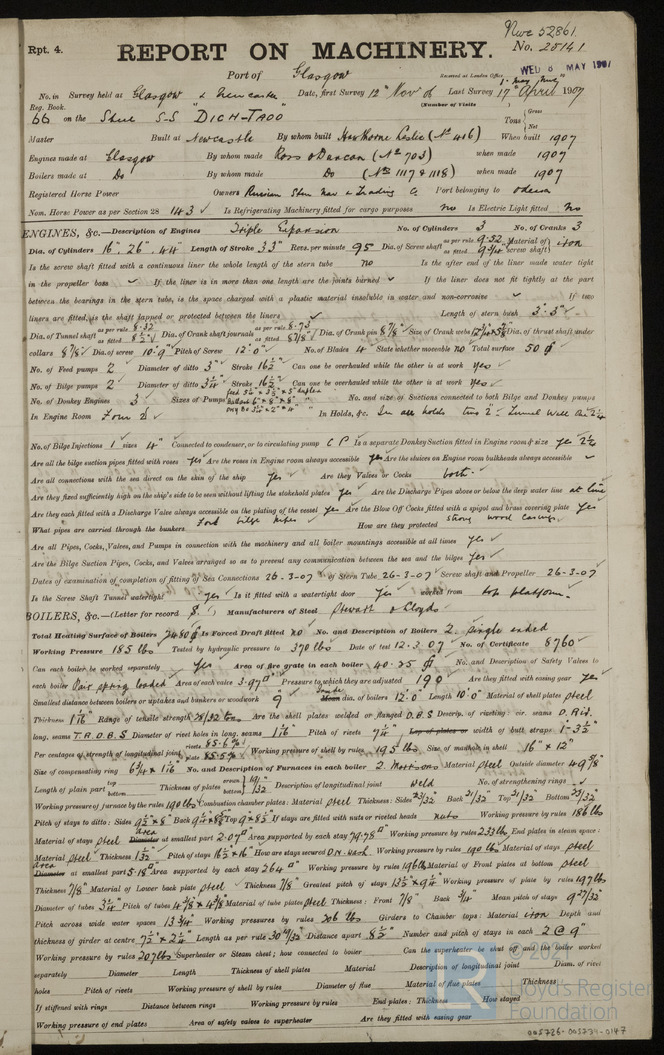 Nwc 52861
Rpt. 4. REPORT ON MACHINERY. No. 25141
Port of Glasgow Received at London Office WED 8 MAY 1907
No. in Survey held at Glasgow & Newcastle Date, first Survey 12th Nov 06 Last Survey 17th April 1907
Reg. Book. (Number of Visits
66 on the Steel S.S "DICH-TADO" Tons Gross Net
Master Built at Newcastle By whom built Hawthorne Leslie (No 416) When built 1907
Engines made at Glasgow By whom made Ross & Duncan (No 703) when made 1907
Boilers made at Do By whom made Do (Nos 1117 & 1118) when made 1907
Registered Horse Power Owners Russian Steam Nav & Trading Co Port belonging to Odessa
Nom. Horse Power as per Section 28 143 Is Refrigerating Machinery fitted for cargo purposes no Is Electric Light fitted no
ENGINES, &c.—Description of Engines Triple Expansion No. of Cylinders 3 No. of Cranks 3
Dia. of Cylinders 16", 26", 44" Length of Stroke 33" Revs. per minute 95 Dia. of Screw shaft as per rule 9.32 as fitted 9 3/4 Material of screw shaft iron
Is the screw shaft fitted with a continuous liner the whole length of the stern tube no Is the after end of the liner made water tight
in the propeller boss If the liner is in more than one length are the joints burned If the liner does not fit tightly at the part
between the bearings in the stern tube, is the space charged with a plastic material insoluble in water and non-corrosive If two
liners are fitted, is the shaft lapped or protected between the liners Length of stern bush 3' 3"
Dia. of Tunnel shaft as per rule 8.32 as fitted 8 1/2 Dia. of Crank shaft journals as per rule 8.73 as fitted 8 7/8 Dia. of Crank pin 8 7/8" Size of Crank webs Dia. of thrust shaft under
collars 8 7/8 Dia. of screw 10' 9" Pitch of Screw 12' 0" No. of Blades 4 State whether moveable no Total surface 50
No. of Feed pumps 2 Diameter of ditto 3" Stroke 16 1/2 Can one be overhauled while the other is at work yes
No. of Bilge pumps 2 Diameter of ditto 3 1/4 Stroke 16 1/2 Can one be overhauled while the other is at work yes
No. of Donkey Engines 3 Sizes of Pumps No. and size of Suctions connected to both Bilge and Donkey pumps
In Engine Room Four 2 In Holds, &c. In all holds two 2" Tunnel Well
No. of Bilge Injections 1 sizes 4" Connected to condenser, or to circulating pump C P Is a separate Donkey Suction fitted in Engine room & size yes
Are all the bilge suction pipes fitted with roses yes Are the roses in Engine room always accessible yes Are the sluices on Engine room bulkheads always accessible
Are all connections with the sea direct on the skin of the ship yes Are they Valves or Cocks both
Are they fixed sufficiently high on the ship's side to be seen without lifting the stokehold plates yes Are the Discharge Pipes above or below the deep water line at line
Are they each fitted with a Discharge Valve always accessible on the plating of the vessel yes Are the Blow Off Cocks fitted with a spigot and brass covering plate yes
What pipes are carried through the bunkers Ford bilge pipes How are they protected strong wood casings
Are all Pipes, Cocks, Valves, and Pumps in connection with the machinery and all boiler mountings accessible at all times yes
Are the Bilge Suction Pipes, Cocks, and Valves arranged so as to prevent any communication between the sea and the bilges yes
Dates of examination of completion of fitting of Sea Connections 26-3-07 of Stern Tube 26-3-07 Screw shaft and Propeller 26-3-07
Is the Screw Shaft Tunnel watertight yes Is it fitted with a watertight door yes worked from top platform
BOILERS, &c.—(Letter for record S.) Manufacturers of Steel Stewart & Lloyds
Total Heating Surface of Boilers 2480 Is Forced Draft fitted no No. and Description of Boilers 2 single ended
Working Pressure 185 lbs Tested by hydraulic pressure to 370 lbs Date of test 12.3.07 No. of Certificate 8760
Can each boiler be worked separately yes Area of fire grate in each boiler 40.25 No. and Description of Safety Valves to
each boiler Pair spring loaded Area of each valve 3.97 Pressure to which they are adjusted 190 Are they fitted with easing gear yes
Smallest distance between boilers or uptakes and bunkers or woodwork 9 dia. of boilers 12' 0" Length 10' 0" Material of shell plates steel
Thickness 1 1/16 Range of tensile strength 28/32 tons Are the shell plates welded or flanged Descrip. of riveting: cir. seams D. Riv.
long. seams T.R.D.B.S Diameter of rivet holes in long. seams 1 1/16 Pitch of rivets 7 1/4 Lap of plates or width of butt straps
Per centages of strength of longitudinal joint rivets 85.6% plate 85.5% Working pressure of shell by rules 195 lbs Size of manhole in shell 16" x 12"
Size of compensating ring No. and Description of Furnaces in each boiler 2 Morisons Material steel Outside diameter
Length of plain part top bottom Thickness of plates crown bottom Description of longitudinal joint weld No. of strengthening rings
Working pressure of furnace by the rules 190 lbs Combustion chamber plates: Material steel Thickness: Sides Back 21/32 Top 21/32 Bottom
Pitch of stays to ditto: Sides Back Top If stays are fitted with nuts or riveted heads nuts Working pressure by rules 186 lbs
Material of stays steel area Diameter at smallest part 2.07 Area supported by each stay 79.78 Working pressure by rules 233 lbs End plates in steam space:
Material steel Thickness 1 3/32 Pitch of stays 16 1/2 x 16 How are stays secured D.N. wash Working pressure by rules 190 lbs Material of stays steel
area Diameter at smallest part 5.18 Area supported by each stay 264 Working pressure by rules 196 lbs Material of Front plates at bottom steel
Thickness 7/8 Material of Lower back plate steel Thickness 7/8 Greatest pitch of stays Working pressure of plate by rules 197 lbs
Diameter of tubes 3 1/4 Pitch of tubes Material of tube plates steel Thickness: Front 7/8 Back 3/4 Mean pitch of stays
Pitch across wide water spaces 13 3/4 Working pressures by rules 206 lbs Girders to Chamber tops: Material iron Depth and
thickness of girder at centre Length as per rule Distance apart 8 1/2 Number and pitch of stays in each 2 @ 9"
Working pressure by rules 207 lbs Superheater or Steam chest; how connected to boiler Can the superheater be shut off and the boiler worked
separately Diameter Length Thickness of shell plates Material Description of longitudinal joint Diam. of rivet
holes Pitch of rivets Working pressure of shell by rules Diameter of flue Material of flue plates Thickness
If stiffened with rings Distance between rings Working pressure by rules End plates: Thickness How stayed
Working pressure of end plates Area of safety valves to superheater Are they fitted with easing gear
Lloyd's Register
Foundation
005726-005734-0147